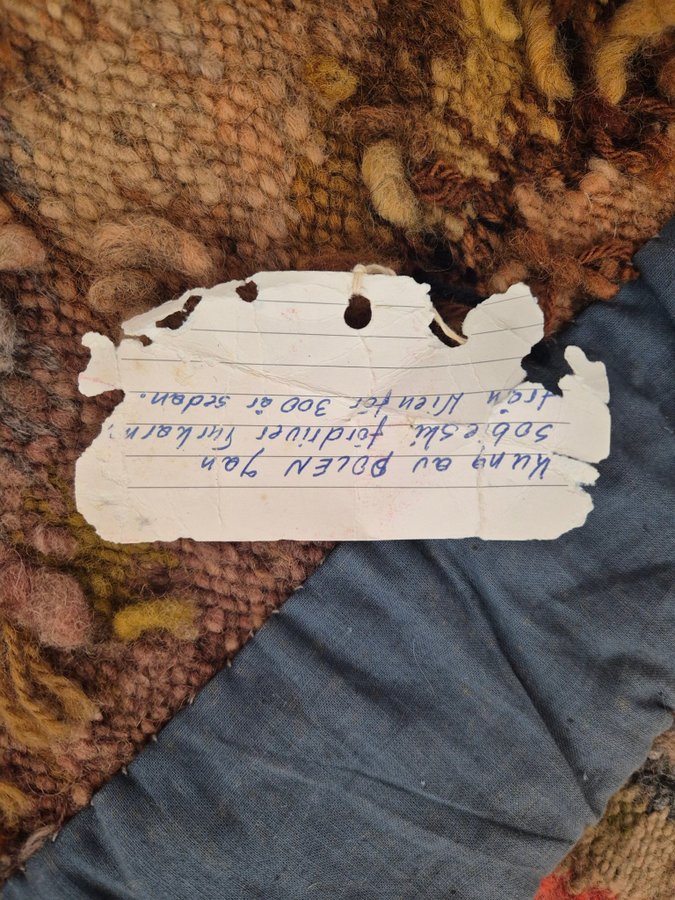 Kung av POLEN Jan
Sobieski fördriver Turkarna
från Wien för 300 år sedan.